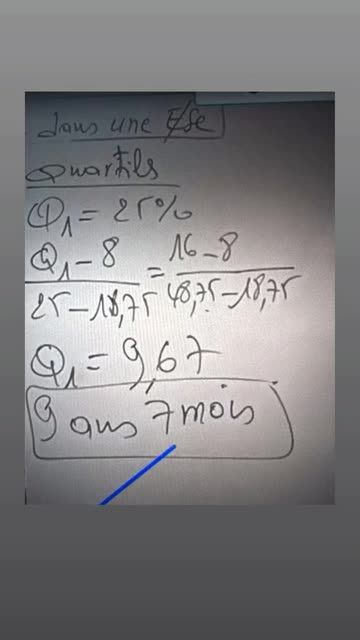 dans une E/se
Quartils
Q1 = 25%
Q1 - 8 / 25 - 18,75 = 16 - 8 / 48,75 - 18,75
Q1 = 9,67
9 ans 7 mois